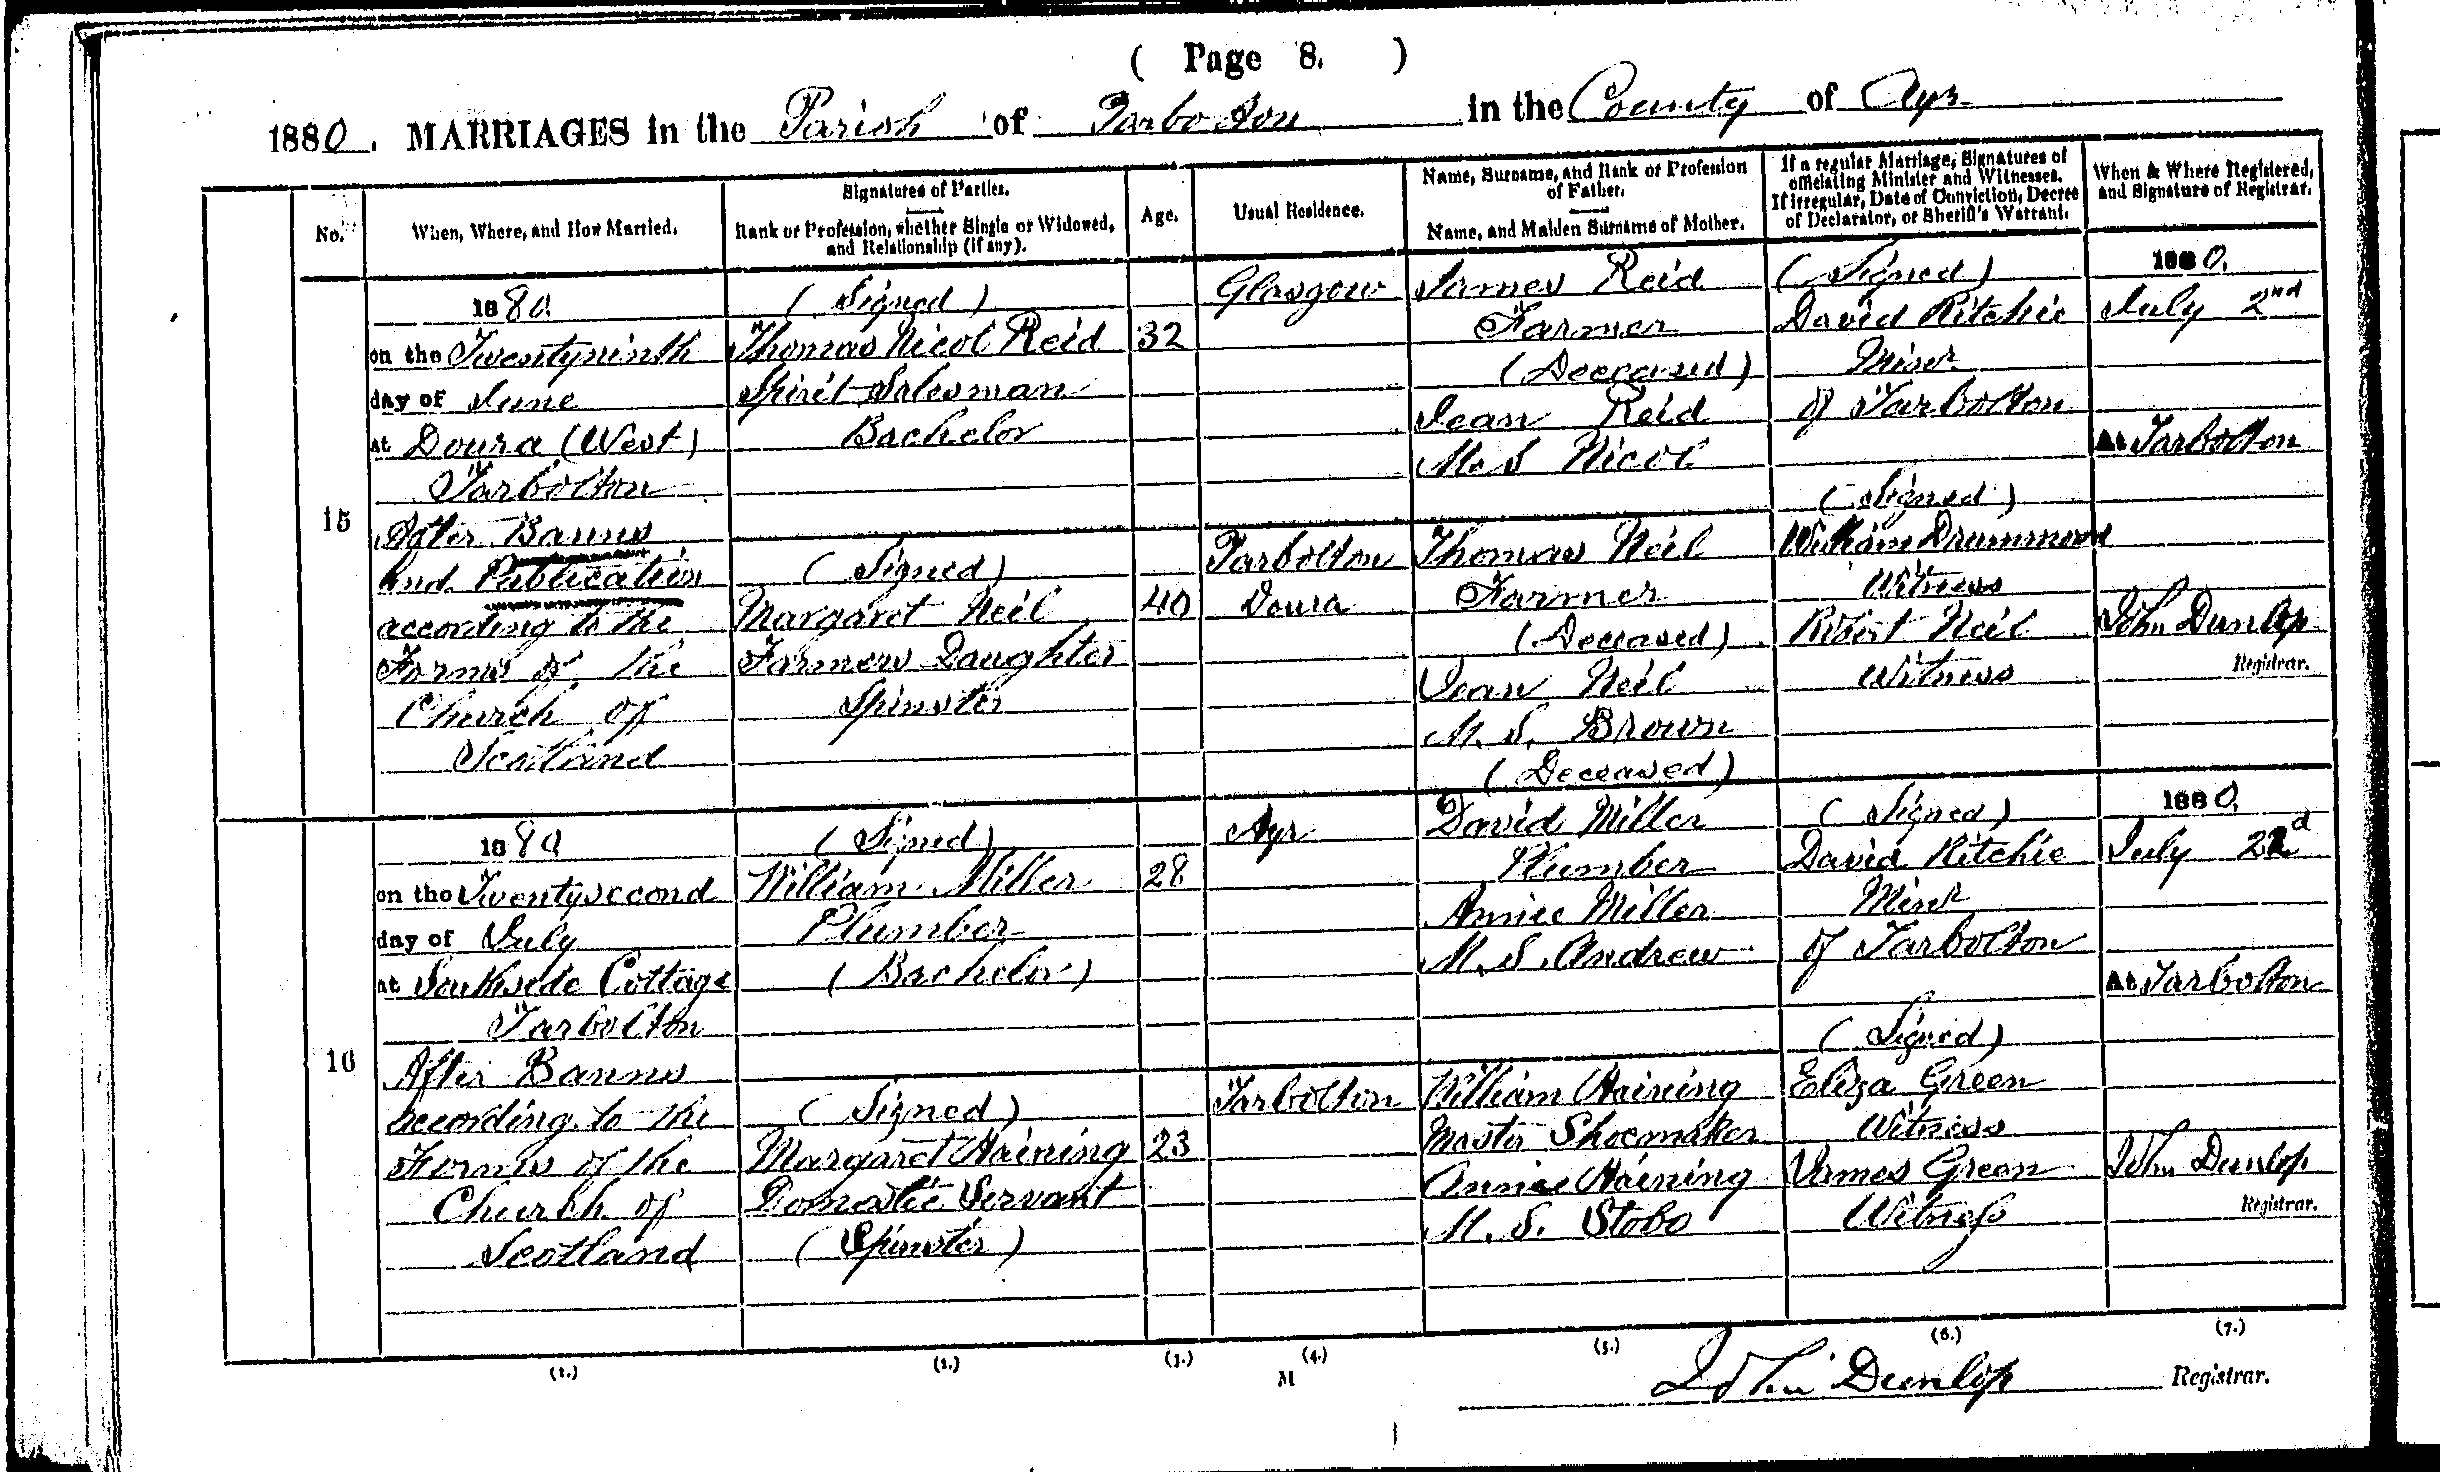 ( Page 8. )
1880. MARRIAGES in the Parish of Tarbolton in the County of Ayr
No.
When, Where, and How Married.
Signatures of Parties.
Rank or Profession, whether Single or Widowed,
and Relationship (if any).
Age.
Usual Residence.
Name, Surname, and Rank or Profession
of Father.
Name, and Maiden Surname of Mother.
If a regular Marriage, Signatures of
officiating Minister and Witnesses.
If irregular, Date of Conviction, Decree
of Declarator, or Sheriff's Warrant.
When & Where Registered,
and Signature of Registrar.
15
1880
on the Twentyninth
day of June
at Doura (West)
Tarbolton
After Banns
and Publication
according to the
Forms of the
Church of
Scotland
(Signed)
Thomas Nicol Reid
Spirit Salesman
Bachelor
(Signed)
Margaret Neil
Farmers Daughter
Spinster
32
40
Glasgow
Tarbolton
Doura
James Reid
Farmer
(Deceased)
Jean Reid
M.S Nicol
Thomas Neil
Farmer
(Deceased)
Jean Neil
M.S. Brown
(Deceased)
(Signed)
David Ritchie
Minr
of Tarbolton
(Signed)
William Drummond
Witness
Robert Neil
Witness
1880.
July 2nd
At Tarbolton
John Dunlop
Registrar.
16
1880
on the Twentysecond
day of July
at Southside Cottage
Tarbolton
After Banns
according to the
Forms of the
Church of
Scotland
(Signed)
William Miller
Plumber
(Bachelor)
(Signed)
Margaret Haining
Domestic Servant
(Spinster)
28
23
Ayr
Tarbolton
David Miller
Plumber
Annie Miller
M.S. Andrew
William Haining
Master Shoemaker
Annie Haining
M.S. Stobo
(Signed)
David Ritchie
Minr
of Tarbolton
(Signed)
Eliza Green
Witness
James Green
Witness
1880.
July 22d
At Tarbolton
John Dunlop
Registrar.
(1.)
(2.)
(3.)
(4.)
(5.)
(6.)
(7.)
M
John Dunlop Registrar.